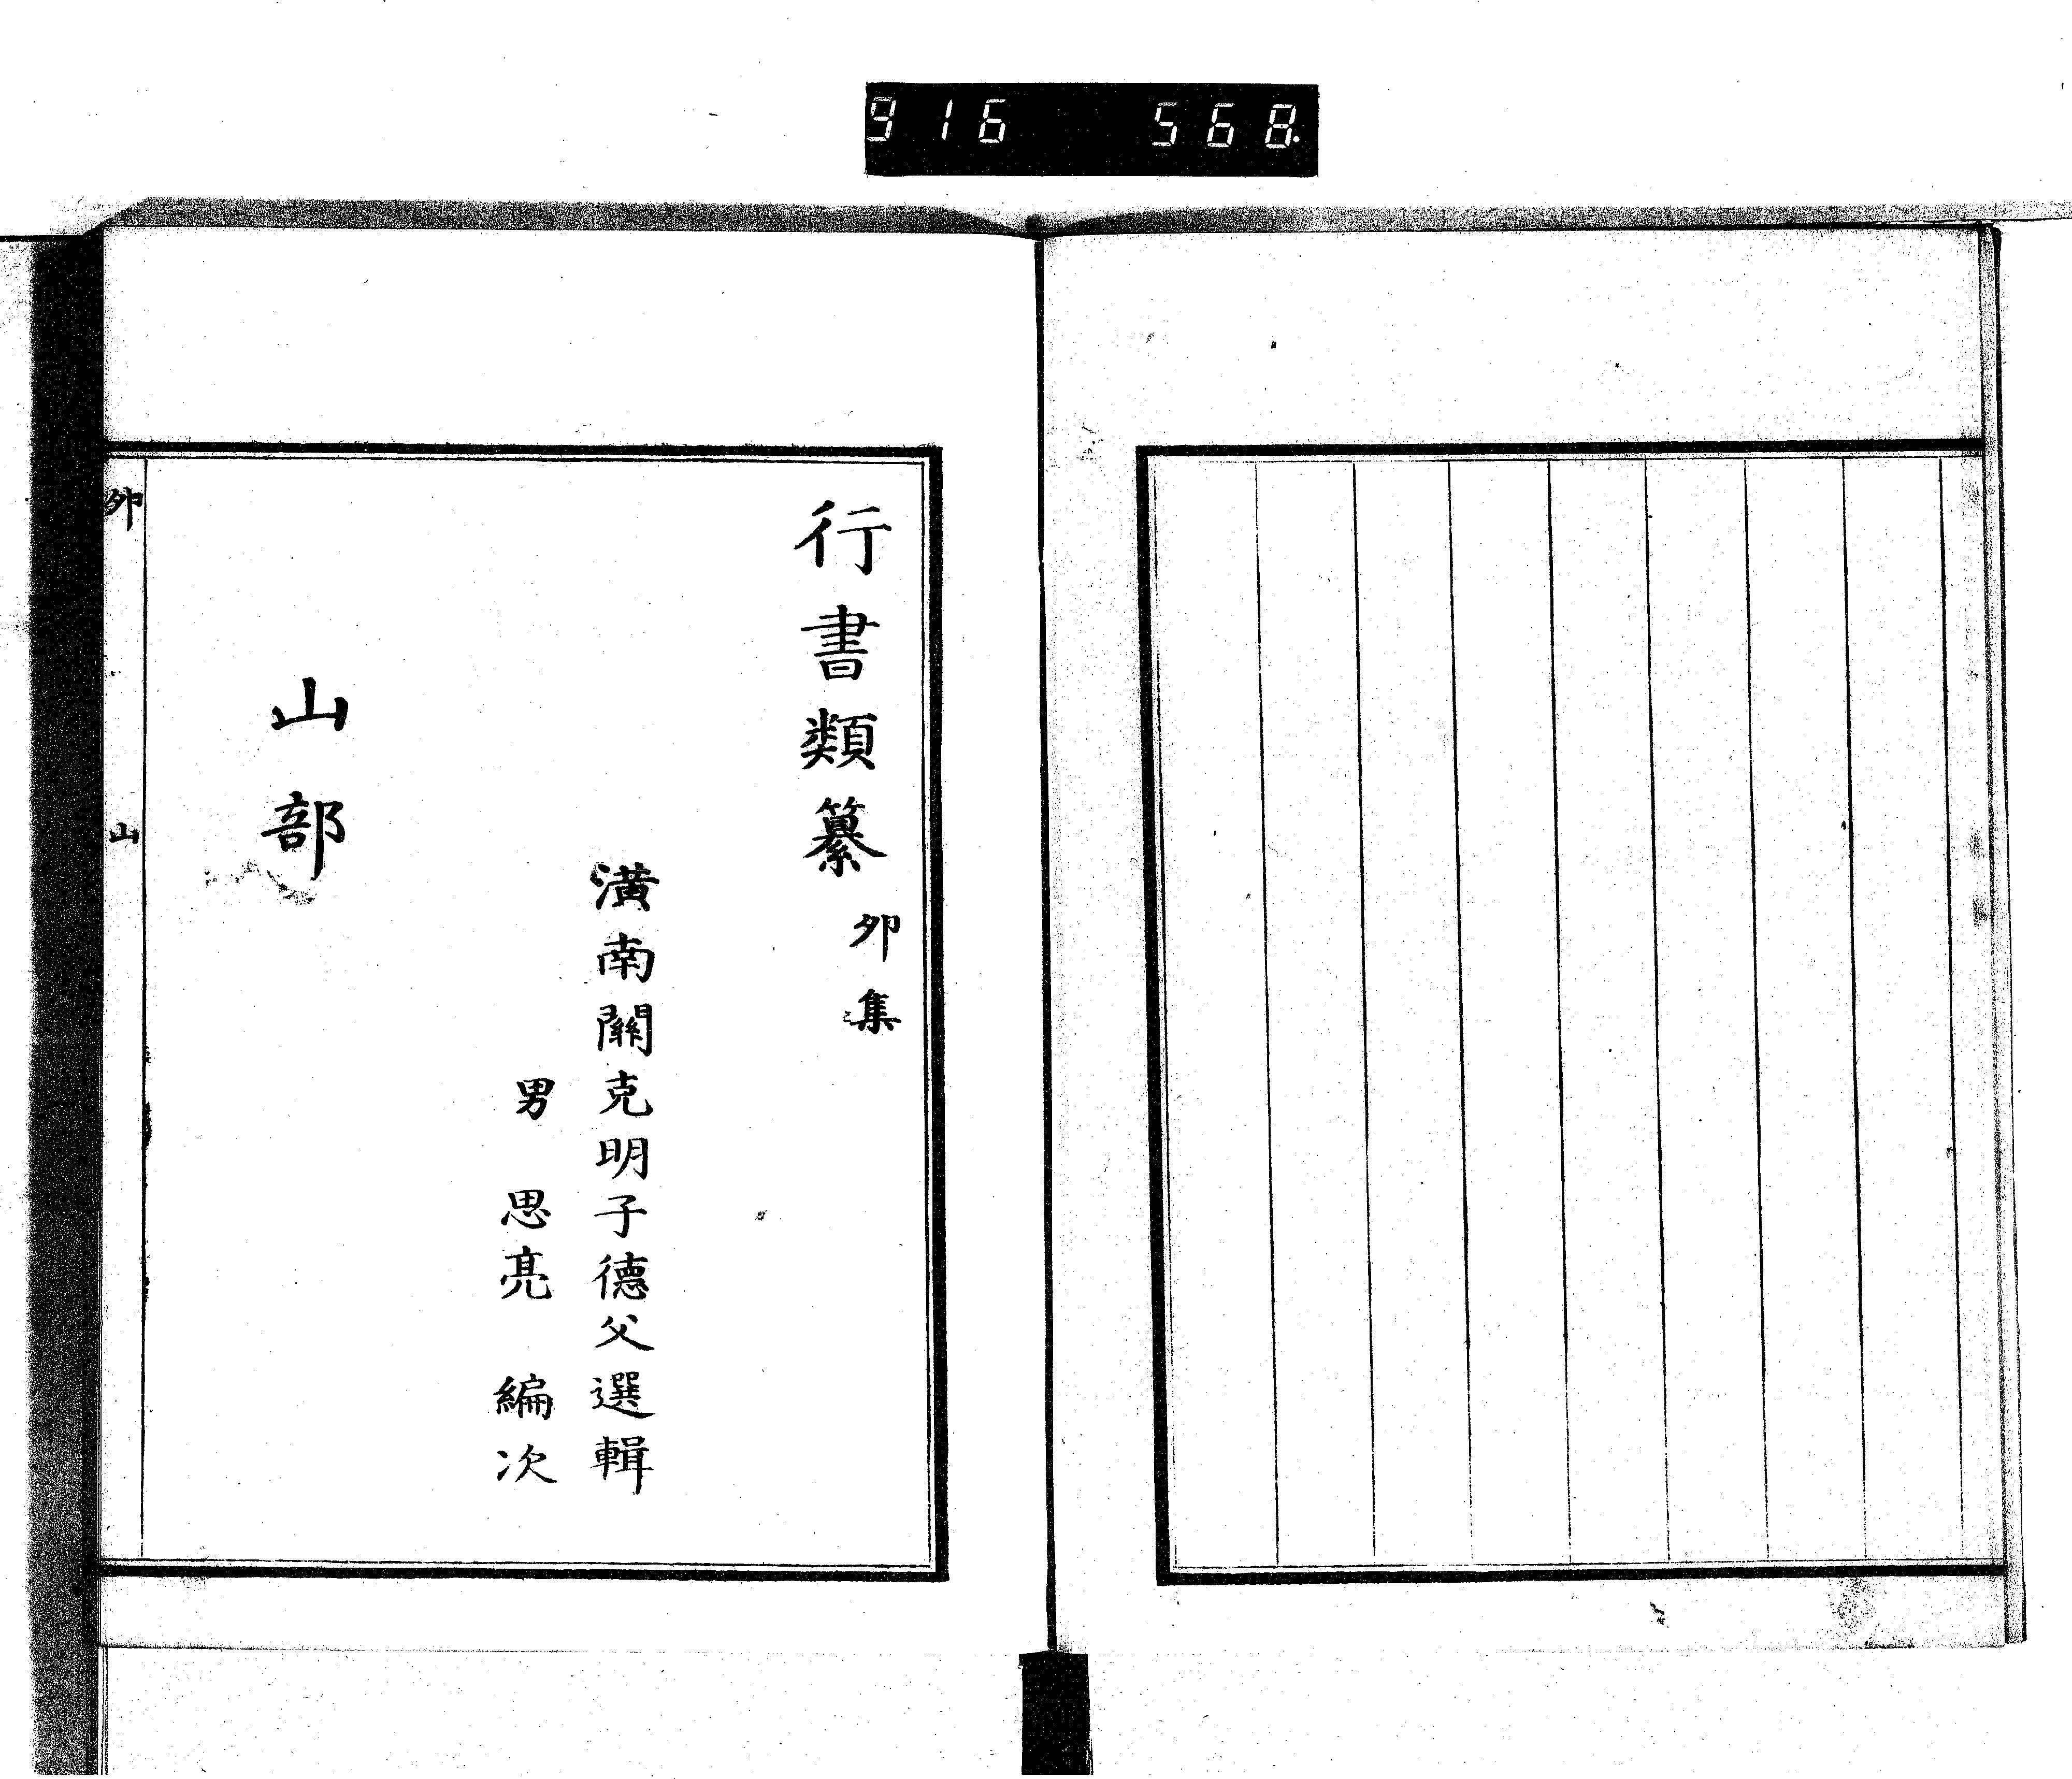 916 568.
行書類纂 夘集
潢南關克明子德父選輯
男 思亮 編次
山部
夘 山